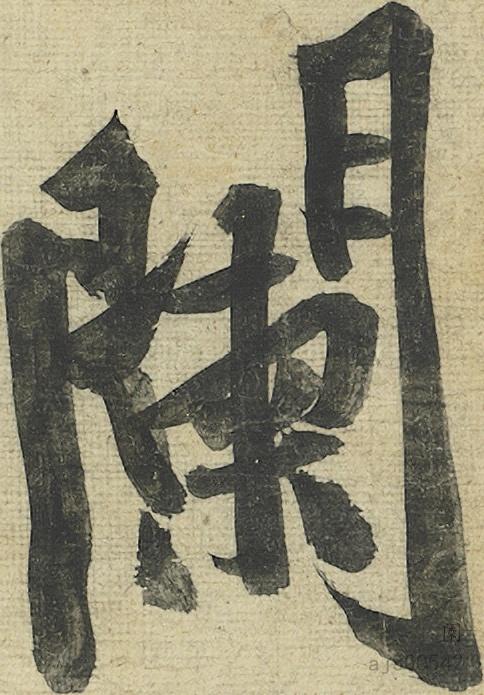 闌
ajs00542